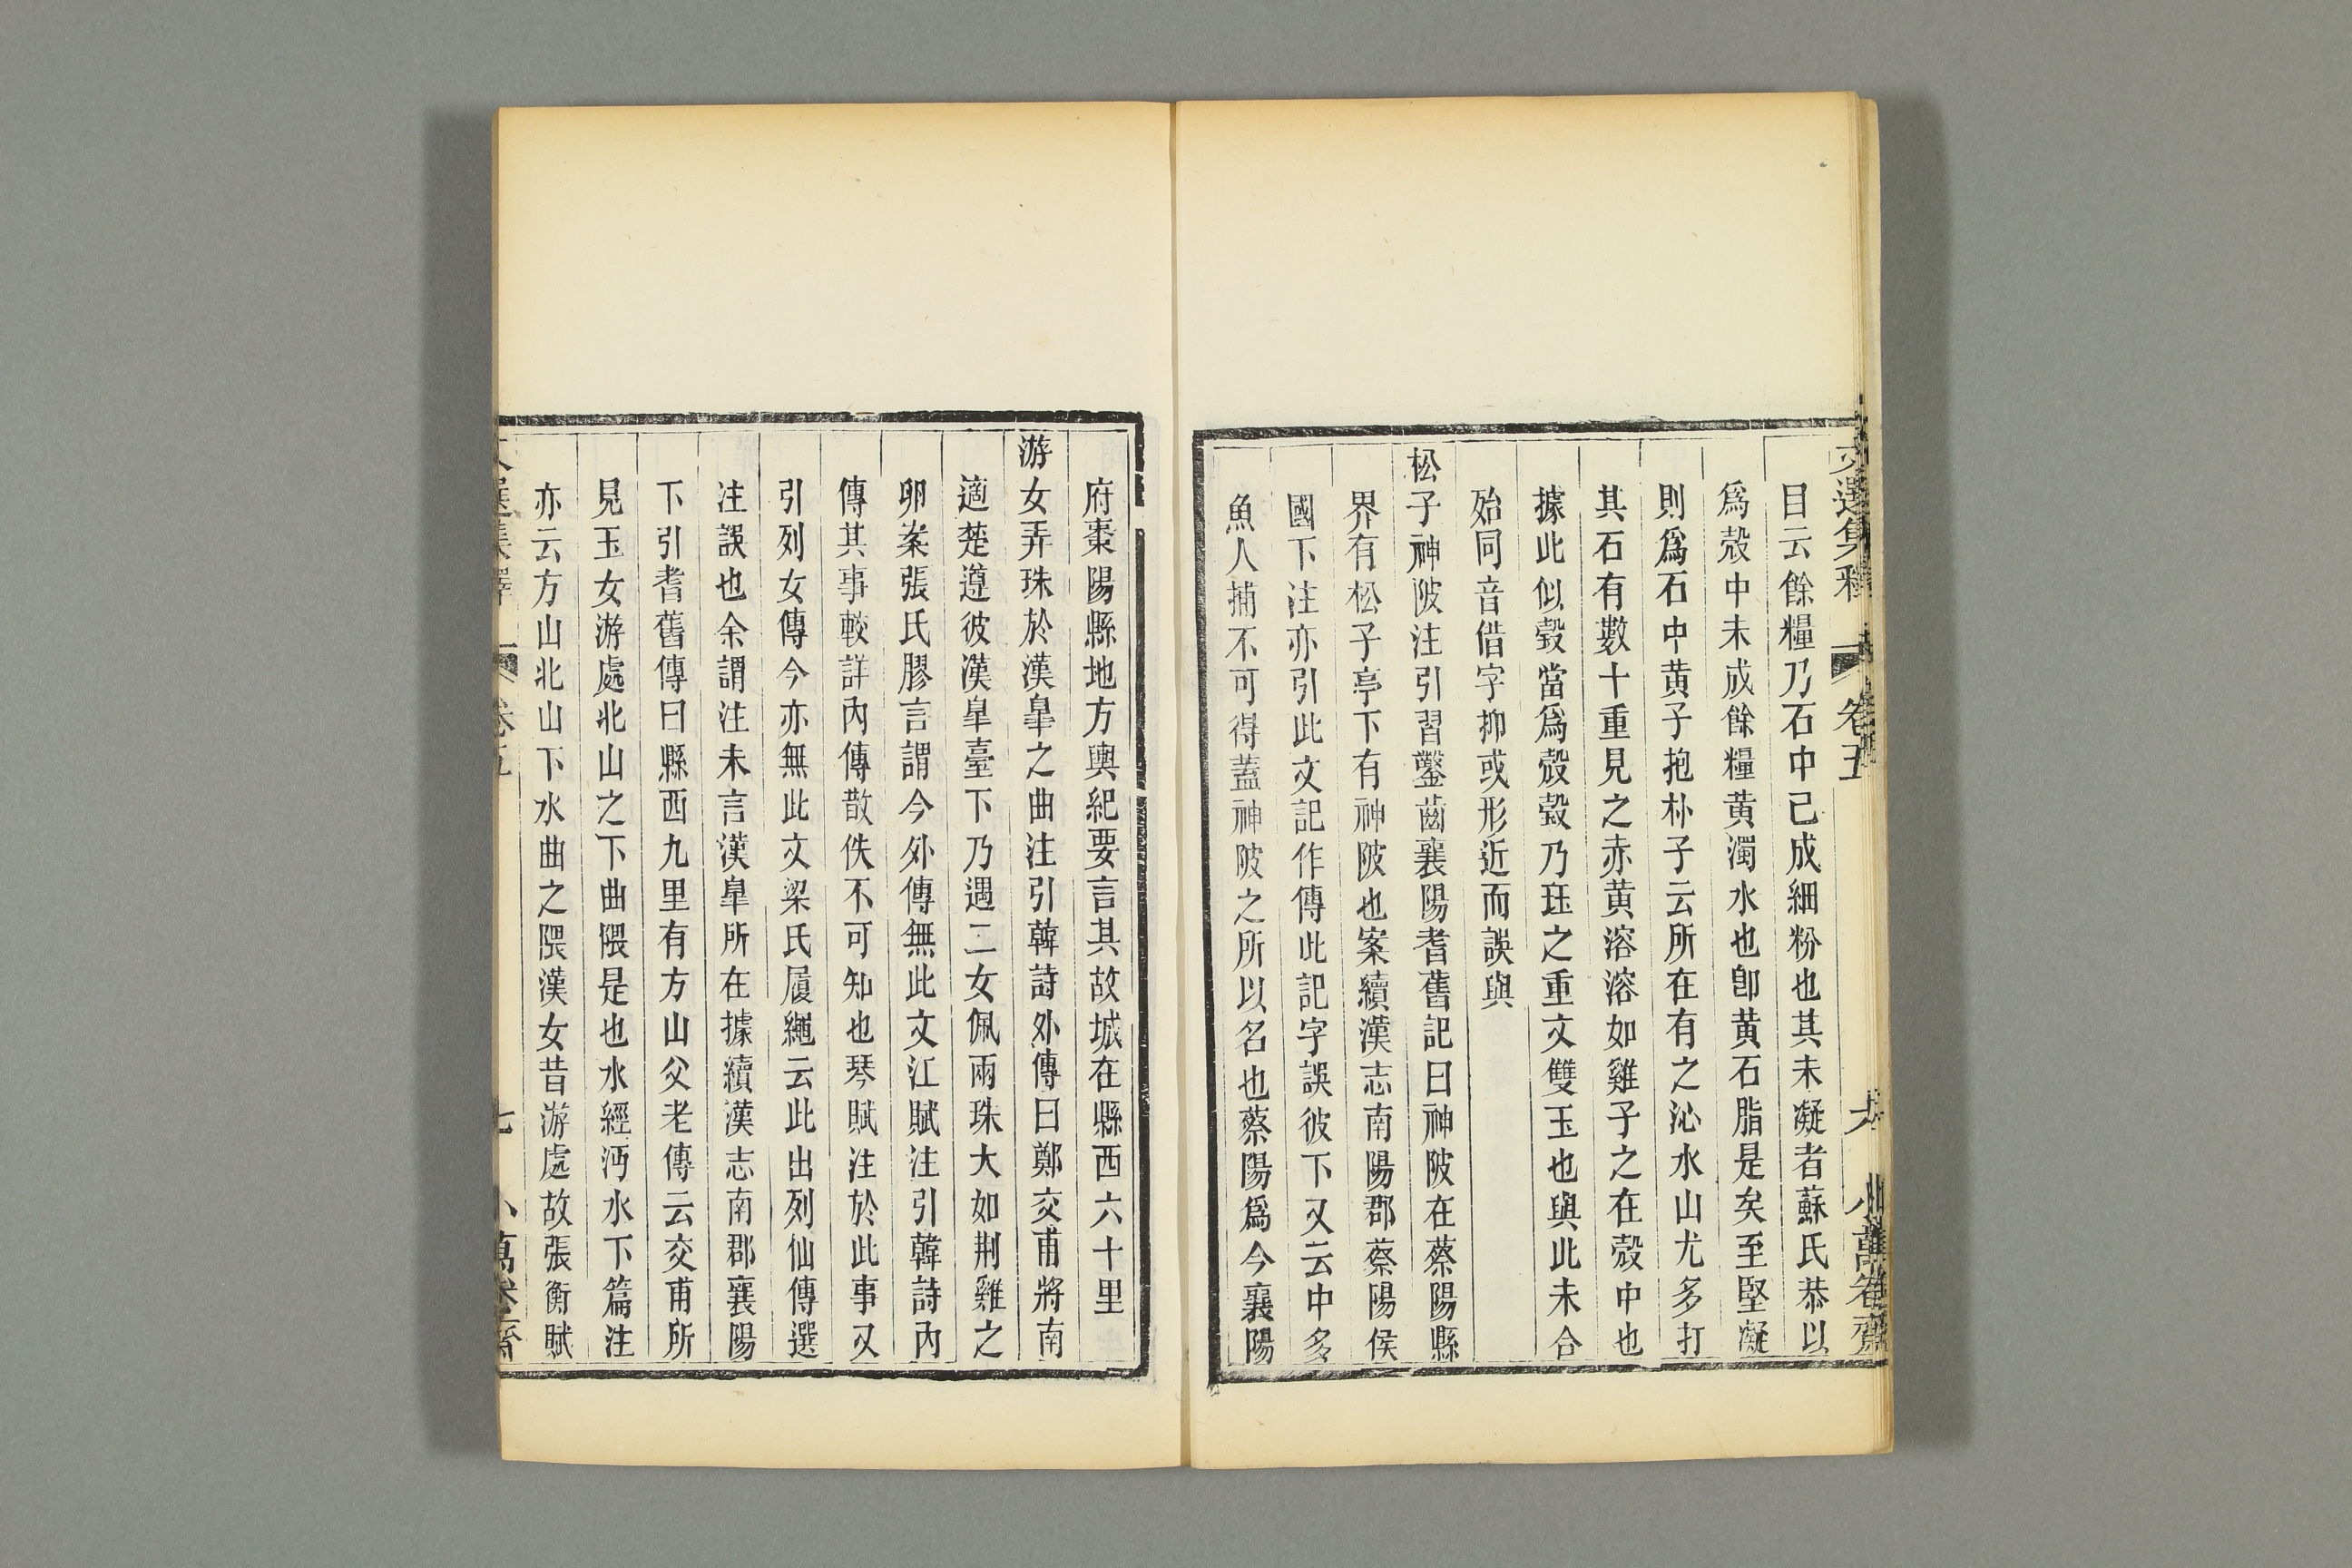 文選集釋 卷五 六 小萬卷齋
目云餘糧乃石中已成細粉也其未凝者蘇氏恭以
爲殼中未成餘糧黃濁水也卽黃石脂是矣至堅凝
則爲石中黃子抱朴子云所在有之沁水山尤多打
其石有數十重見之赤黃溶溶如雞子之在殼中也
據此似瑴當爲殼瑴乃珏之重文雙玉也與此未合
殆同音借字抑或形近而誤與
松子神陂注引習鑿齒襄陽耆舊記曰神陂在蔡陽縣
界有松子亭下有神陂也案續漢志南陽郡蔡陽侯
國下注亦引此文記作傳此記字誤彼下又云中多
魚人捕不可得蓋神陂之所以名也蔡陽爲今襄陽
府棗陽縣地方輿紀要言其故城在縣西六十里
游女弄珠於漢皐之曲注引韓詩外傳曰鄭交甫將南
適楚遵彼漢皐臺下乃遇二女佩兩珠大如荆雞之
卵案張氏膠言謂今外傳無此文江賦注引韓詩內
傳其事較詳內傳散佚不可知也琴賦注於此事又
引列女傳今亦無此文梁氏履繩云此出列仙傳選
注誤也余謂注未言漢皐所在據續漢志南郡襄陽
下引耆舊傳曰縣西九里有方山父老傳云交甫所
見玉女游處北山之下曲隈是也水經沔水下篇注
亦云方山北山下水曲之隈漢女昔游處故張衡賦
卷五 七 小萬卷齋